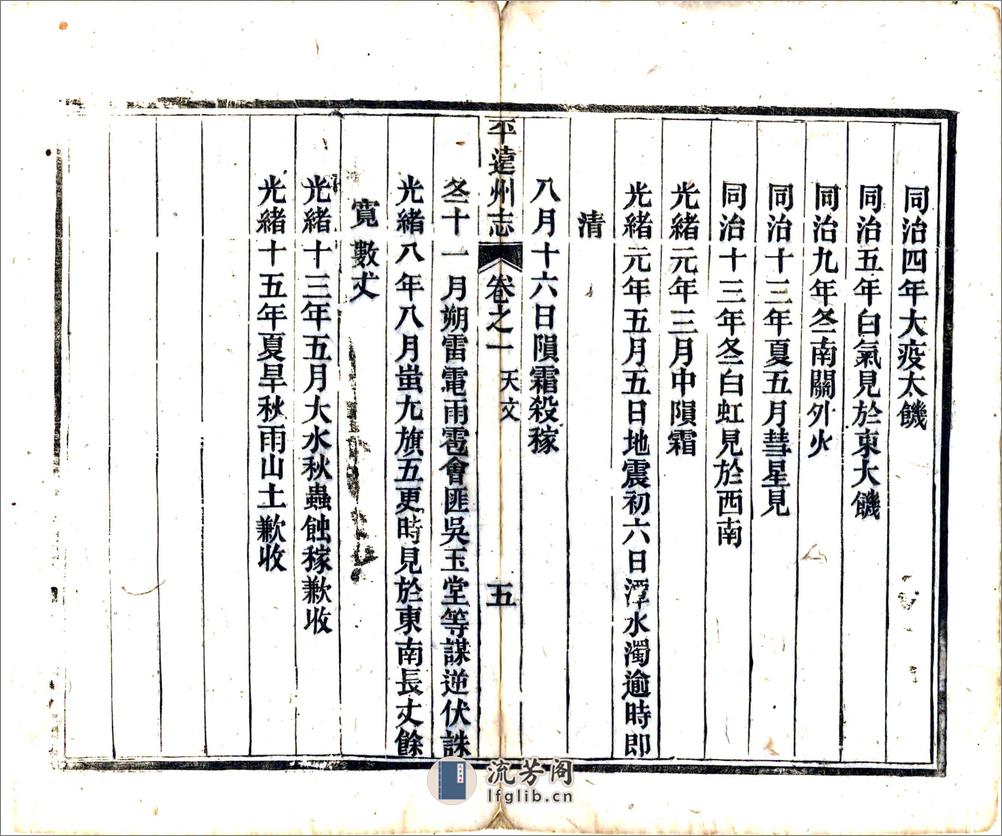 同治四年大疫太饑
同治五年白氣見於東大饑
同治九年冬南關外火
同治十三年夏五月彗星見
同治十三年冬白虹見於西南
光緒元年三月中隕霜
光緒元年五月五日地震初六日潭水濁逾時即
清
八月十六日隕霜殺稼
平遠州志 卷之一 天文 五
冬十一月朔雷電雨雹會匪吳玉堂等謀逆伏誅
光緒八年八月蚩尤旗五更時見於東南長丈餘
寬數丈
光緒十三年五月大水秋蟲蝕稼歉收
光緒十五年夏旱秋雨山土歉收
流芳阁
lfglib.cn